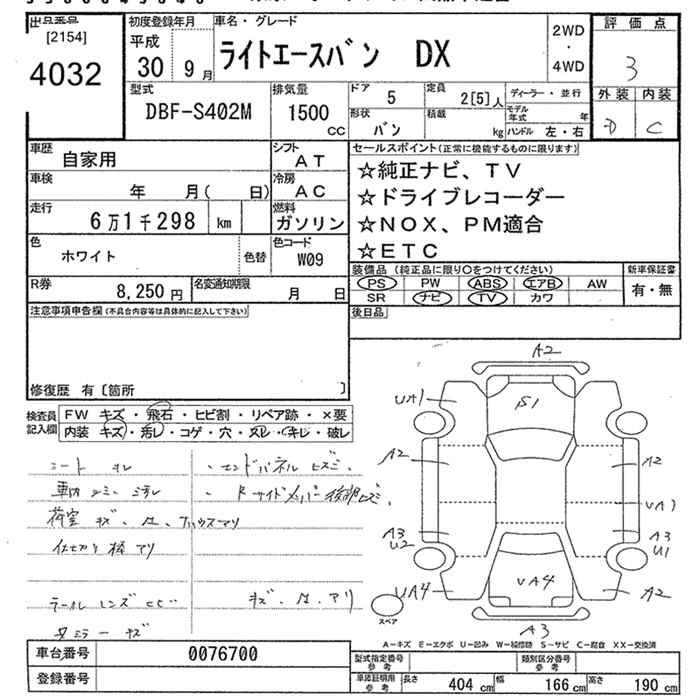 出品番号
[2154]
4032
初度登録年月
平成
30 9月
車名・グレード
ライトエースバン DX
2WD
・
4WD
評価点
3
外装 内装
D C
型式
DBF-S402M
排気量
1500
CC
ドア 5
定員 2[5]人
ディーラー・並行
形状 バン
積載 kg
モデル年式 年
ハンドル 左・右
車歴
自家用
シフト
AT
車検
年 月( 日)
冷房
AC
走行
6万1千298 km
燃料
ガソリン
色
ホワイト
色替
色コード
W09
R券
8,250円
名変通知期限
月 日
セールスポイント(正常に機能するものに限ります)
☆純正ナビ、TV
☆ドライブレコーダー
☆NOX、PM適合
☆ETC
装備品 (純正品に限り○をつけてください)
PS PW ABS エアB AW
SR ナビ TV カワ
新車保証書
有・無
後日品
注意事項申告欄(不具合内容等は具体的に記入して下さい)
修復歴 有〔箇所 〕
検査員記入欄
FW キズ・飛石・ヒビ割・リペア跡・×要
内装 キズ・汚レ・コゲ・穴・スレ・キレ・破レ
シート
・エンドパネル ヒズミ、
車内
荷室 キズ、
仕切り板 アリ
テールレンズ ヒビ
キズ、 アリ
ミラー キズ
A2
UA1
S1
A2
A2
UA3
A3
U2
A3
U1
UA4
UA4
A2
スペア
A3
A-キズ E-エクボ U-凹み W-補修跡 S-サビ C-腐食 XX-交換済
車台番号
0076700
登録番号
型式指定番号
参考
類別区分番号
参考
車庫証明用
参考
長さ 404cm
幅 166cm
高さ 190cm